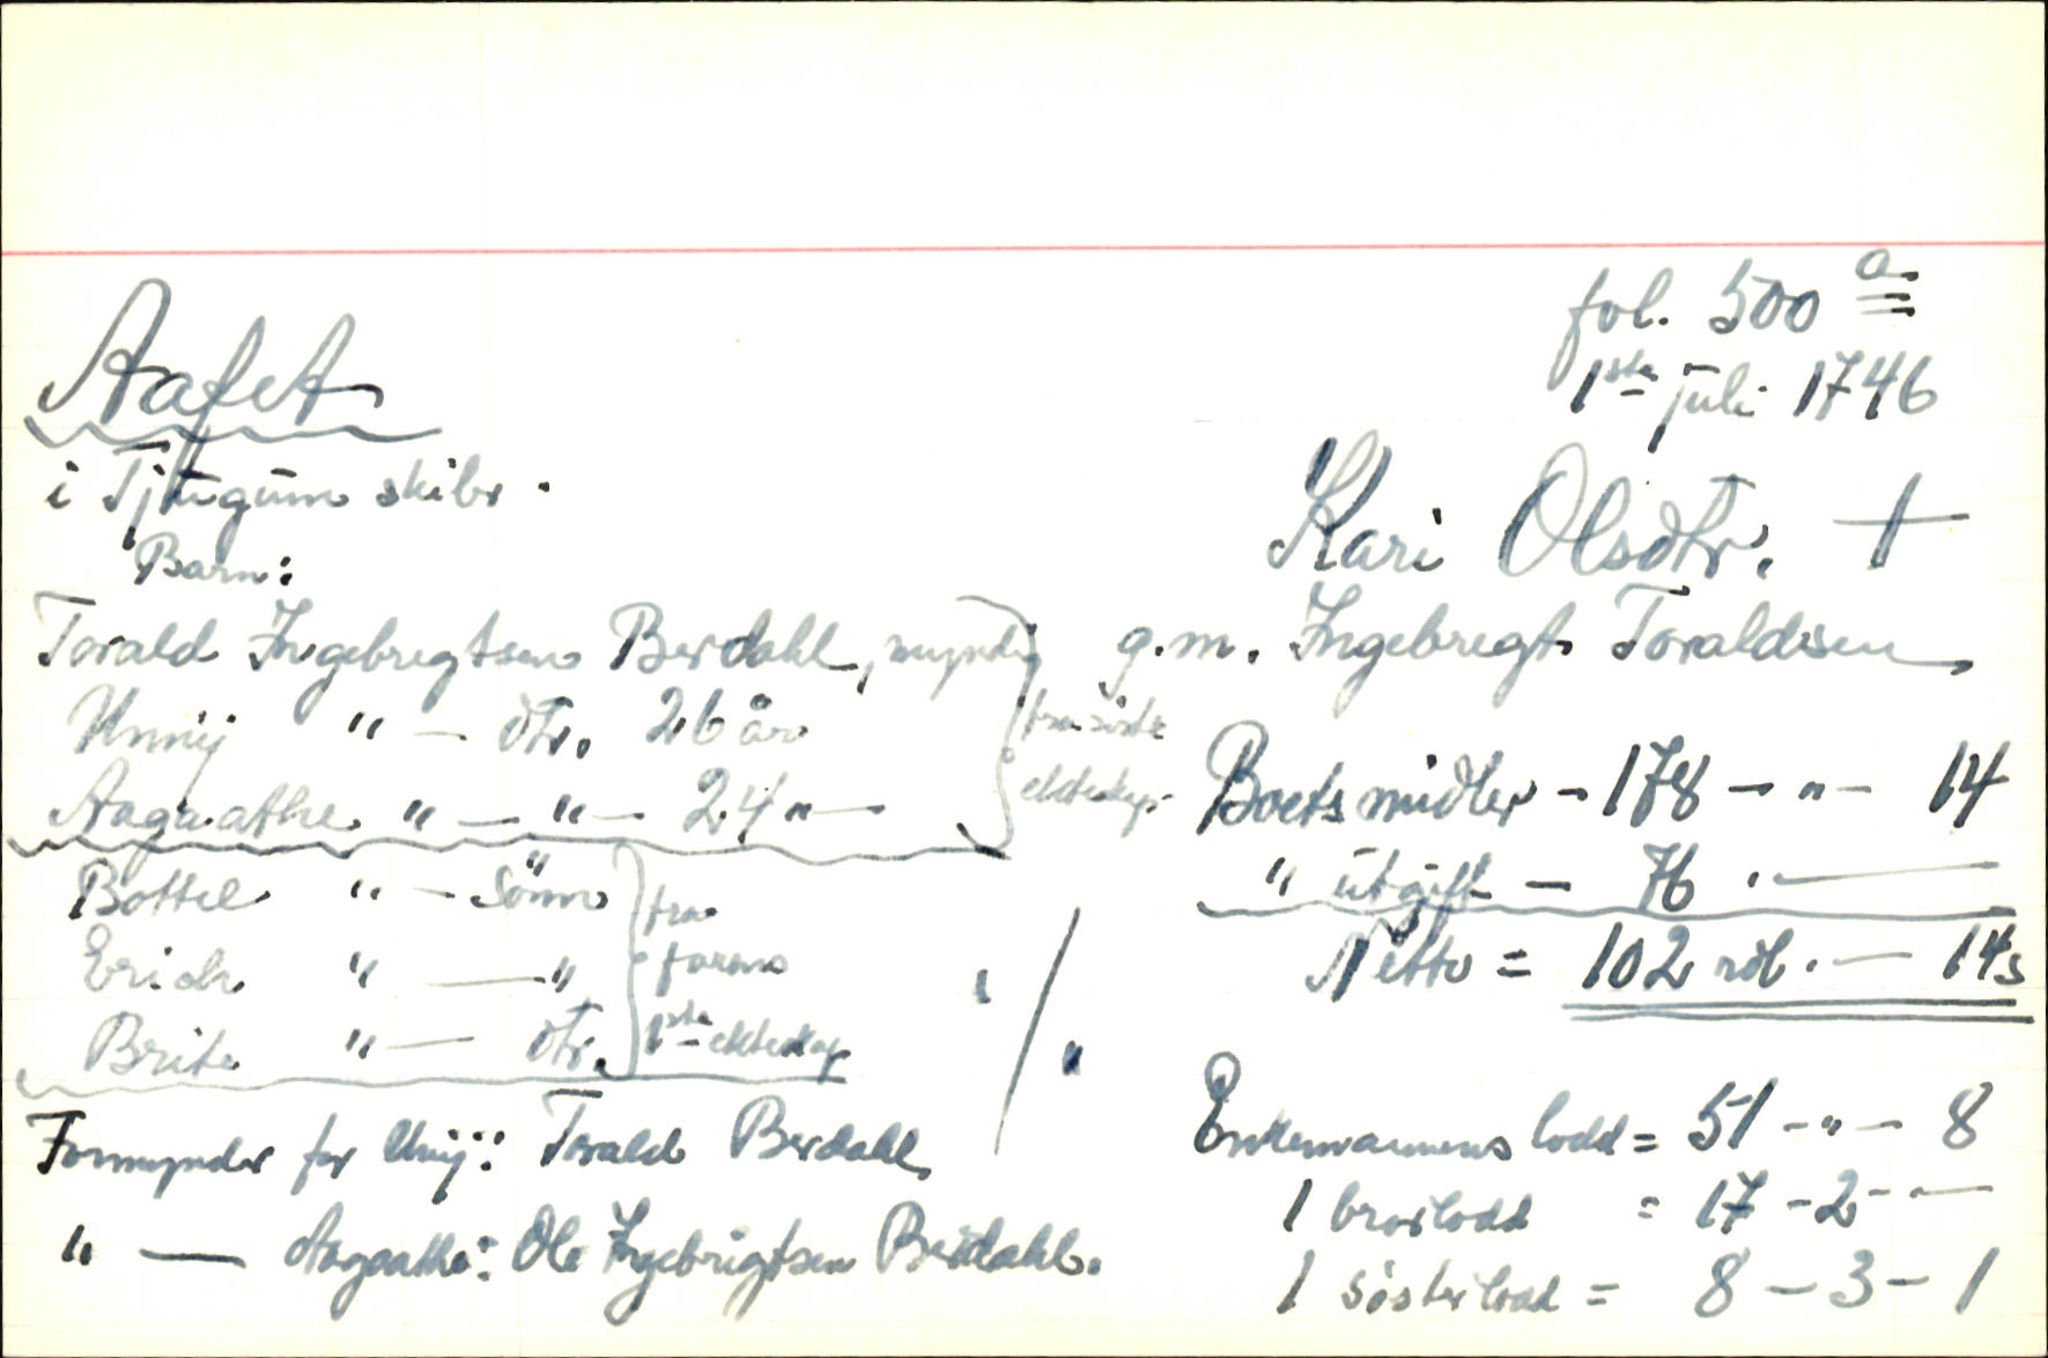 fol. 500 a
1ste juli 1746
Aafet
i Tjugum skibr.
Kari Olsdtr. †
g.m. Ingebregt Toraldsen
Barn:
Torald Ingebregtsen Berdahl, myndig
Unnij " — dtr. 26 år
Aagaathe " — " — 24 " —
fra siste
ekteskap
Bottel " — Sönn
Erich " — "
Brite " — dtr.
fra
farens
1ste ekteskap
Formynder for Unij: Torald Berdahl,
" — Aagaathe: Ole Ingebrigtsen Berdahl.
Boets midler - 178 - " - 14
" utgift - 76 . —
Netto = 102 rdl. — 14 s
Enkemannens lodd = 51 - " - 8
1 brorlodd = 17 - 2 - . —
1 sösterlodd = 8 - 3 - 1